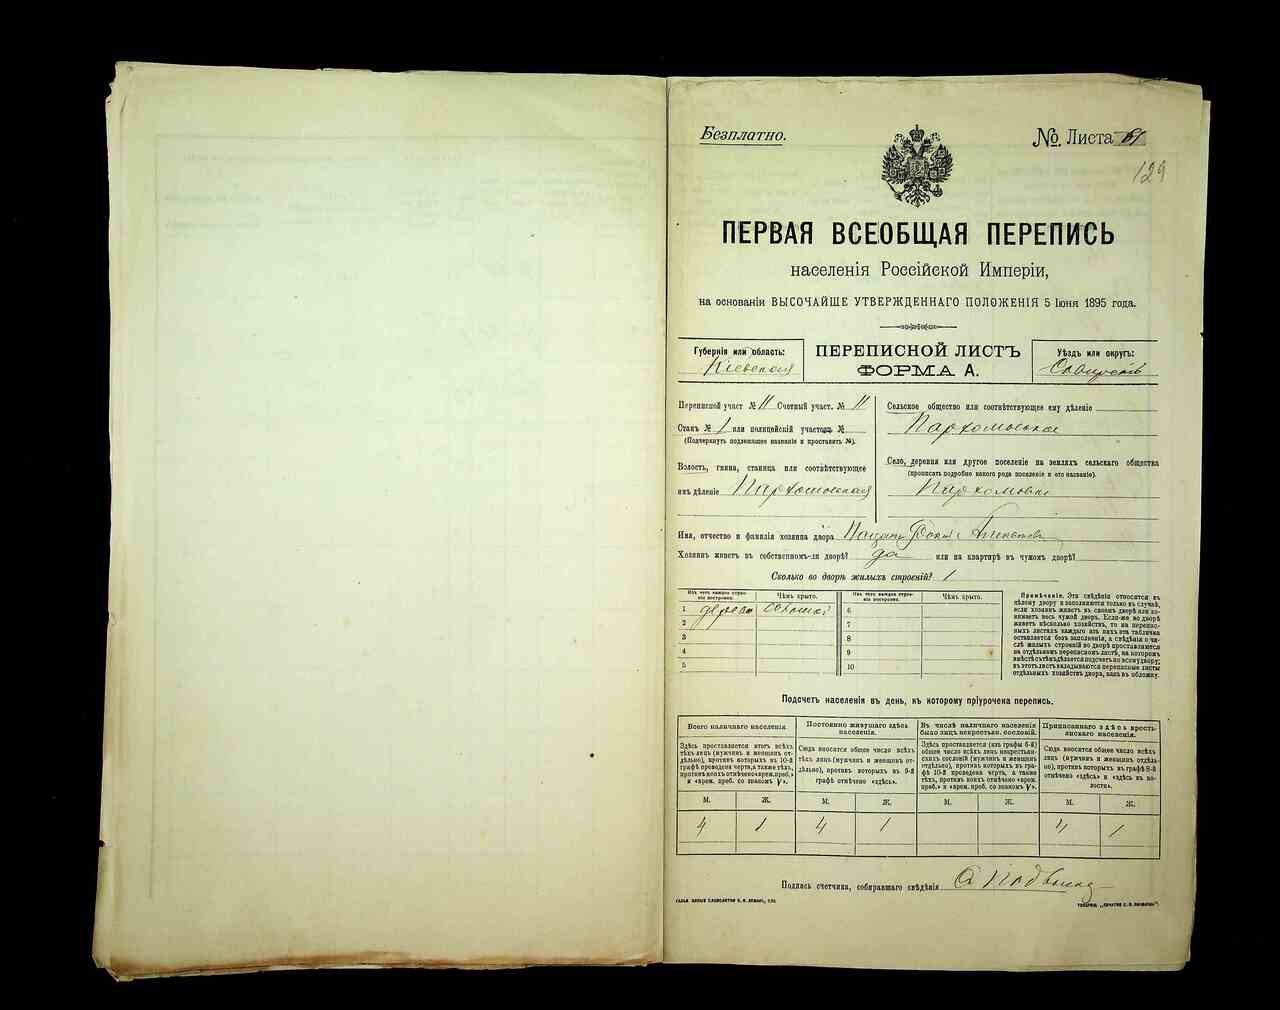 Безплатно.
№ Листа 61
129
ПЕРВАЯ ВСЕОБЩАЯ ПЕРЕПИСЬ
населенія Россійской Имперіи,
на основаніи ВЫСОЧАЙШЕ УТВЕРЖДЕННАГО ПОЛОЖЕНІЯ 5 Іюня 1895 года.
Губернія или область:
Кіевская
ПЕРЕПИСНОЙ ЛИСТЪ
ФОРМА А.
Уѣздъ или округъ:
Переписной участ № 11 Счетный участ. № 11
Станъ № 1 или полицейскій участокъ №
(Подчеркнуть подлежащее названіе и проставить №).
Волость, гмина, станица или соотвѣтствующее
имъ дѣленіе Пархомовская
Сельское общество или соотвѣтствующее ему дѣленіе
Пархомовское
Село, деревня или другое поселеніе на земляхъ сельскаго общества
(прописать подробно какого рода поселеніе и его названіе).
Пархомовка
Имя, отчество и фамилія хозяина двора
Хозяинъ живетъ въ собственномъ-ли дворѣ? да или на квартирѣ въ чужомъ дворѣ?
Сколько во дворѣ жилыхъ строеній? 1
Изъ чего каждое строеніе построено.
Чѣмъ крыто.
Изъ чего каждое строеніе построено.
Чѣмъ крыто.
1 дерева соломой 6
2 7
3 8
4 9
5 10
Примѣчаніе. Эти свѣдѣнія относятся къ
цѣлому двору и заполняются только въ случаѣ,
если хозяинъ живетъ въ своемъ дворѣ или занимаетъ весь чужой дворъ. Если-же во дворѣ
живетъ нѣсколько хозяйствъ, то на переписныхъ листахъ каждаго изъ нихъ эта табличка
оставляется безъ заполненія, а свѣдѣнія о числѣ жилыхъ строеній во дворѣ проставляются
на отдѣльномъ переписномъ листѣ, на которомъ
вмѣстѣ съ тѣмъ дѣлается подсчетъ по всему двору;
въ этотъ листъ вкладываются переписные листы
отдѣльныхъ хозяйствъ двора, какъ въ обложку.
Подсчетъ населенія въ день, къ которому пріурочена перепись.
Всего наличнаго населенія
Здѣсь проставляется итогъ всѣхъ
лицъ (мужчинъ и женщинъ отдѣльно), противъ которыхъ въ 10-й
графѣ проведена черта, а также тѣхъ,
противъ коихъ отмѣчено «врем. преб.»
и «врем. преб. со знакомъ V».
Постоянно живущаго здѣсь
населенія.
Сюда вносится общее число всѣхъ
тѣхъ лицъ (мужчинъ и женщинъ отдѣльно), противъ которыхъ въ 9-й
графѣ отмѣчено «здѣсь».
Въ числѣ наличнаго населенія
было лицъ некрестьян. сословій.
Здѣсь проставляется (изъ графы 6-й)
общее число всѣхъ лицъ некрестьянскихъ сословій (мужчинъ и женщинъ
отдѣльно), противъ которыхъ въ графѣ 10-й проведена черта, а также
тѣхъ, противъ коихъ отмѣчено «врем.
преб.» и «врем. преб. со знакомъ V».
Приписаннаго здѣсь крестьянскаго населенія.
Сюда вносится общее число всѣхъ
лицъ (мужчинъ и женщинъ отдѣльно), противъ которыхъ въ графѣ 8-й
отмѣчено «здѣсь» и «здѣсь въ волости».
М. Ж. М. Ж. М. Ж. М. Ж.
4 1 4 1 4 1
Подпись счетчика, собиравшаго свѣдѣнія